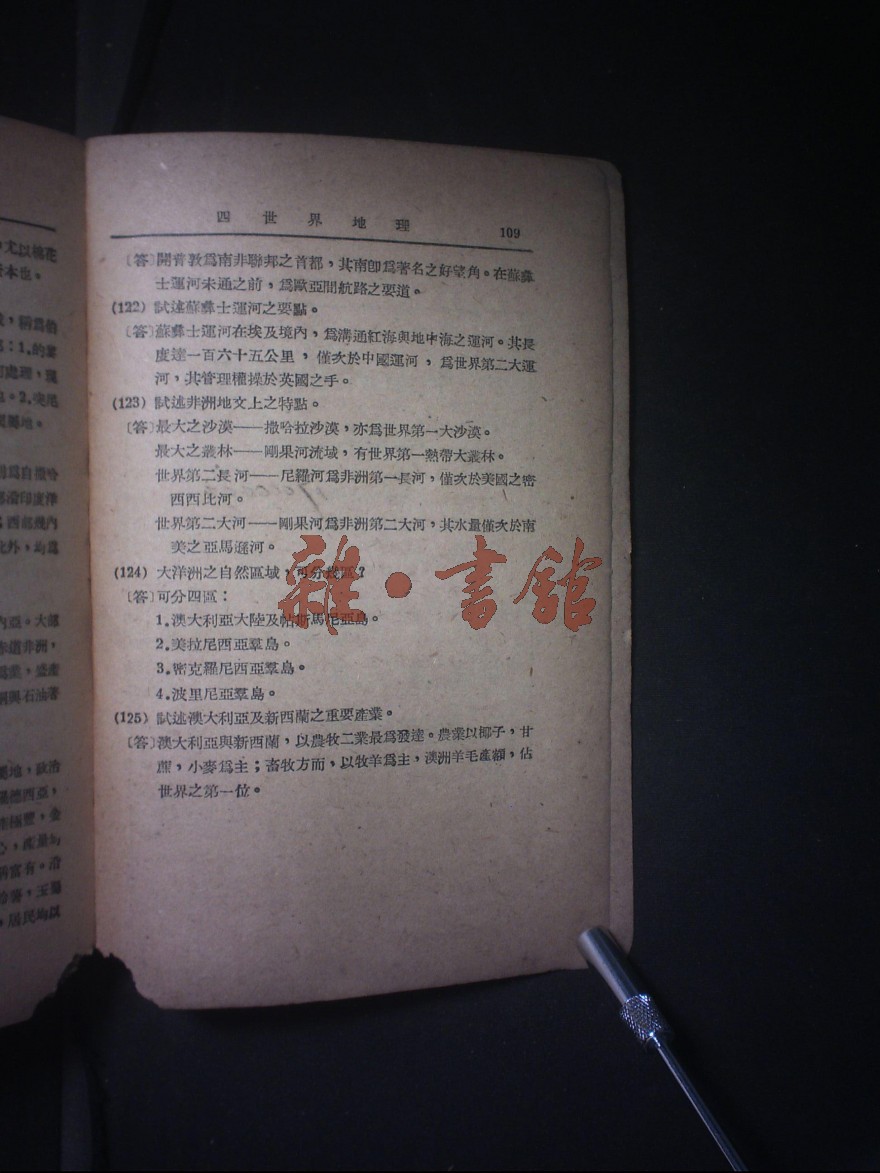 四世界地理 109
〔答〕開普敦爲南非聯邦之首都，其南卽爲著名之好望角。在蘇彝
士運河未通之前，爲歐亞間航路之要道。
(122) 試述蘇彝士運河之要點。
〔答〕蘇彝士運河在埃及境內，爲溝通紅海與地中海之運河。其長
度達一百六十五公里，僅次於中國運河，爲世界第二大運
河，其管理權操於英國之手。
(123) 試述非洲地文上之特點。
〔答〕最大之沙漠——撒哈拉沙漠，亦爲世界第一大沙漠。
最大之叢林——剛果河流域，有世界第一熱帶大叢林。
世界第二長河——尼羅河爲非洲第一長河，僅次於美國之密
西西比河。
世界第二大河——剛果河爲非洲第二大河，其水量僅次於南
美之亞馬遜河。
(124) 大洋洲之自然區域，可分幾區？
〔答〕可分四區：
1.澳大利亞大陸及帖斯馬尼亞島。
2.美拉尼西亞羣島。
3.密克羅尼西亞羣島。
4.波里尼亞羣島。
(125) 試述澳大利亞及新西蘭之重要產業。
〔答〕澳大利亞與新西蘭，以農牧二業最爲發達。農業以椰子，甘
蔗，小麥爲主；畜牧方面，以牧羊爲主，澳洲羊毛產額，佔
世界之第一位。
雜·書館
尤以棉花
本也。
，稱爲伯
：1.的業
處理，
。2.突尼
屬地。
爲自撒哈
沿印度洋
西部幾內
此外，均爲
內亞。大部
赤道非洲，
盛產
與石油著
屬地，政治
羅德西亞，
極豐，金
心，產量均
富有。沿
居民均以